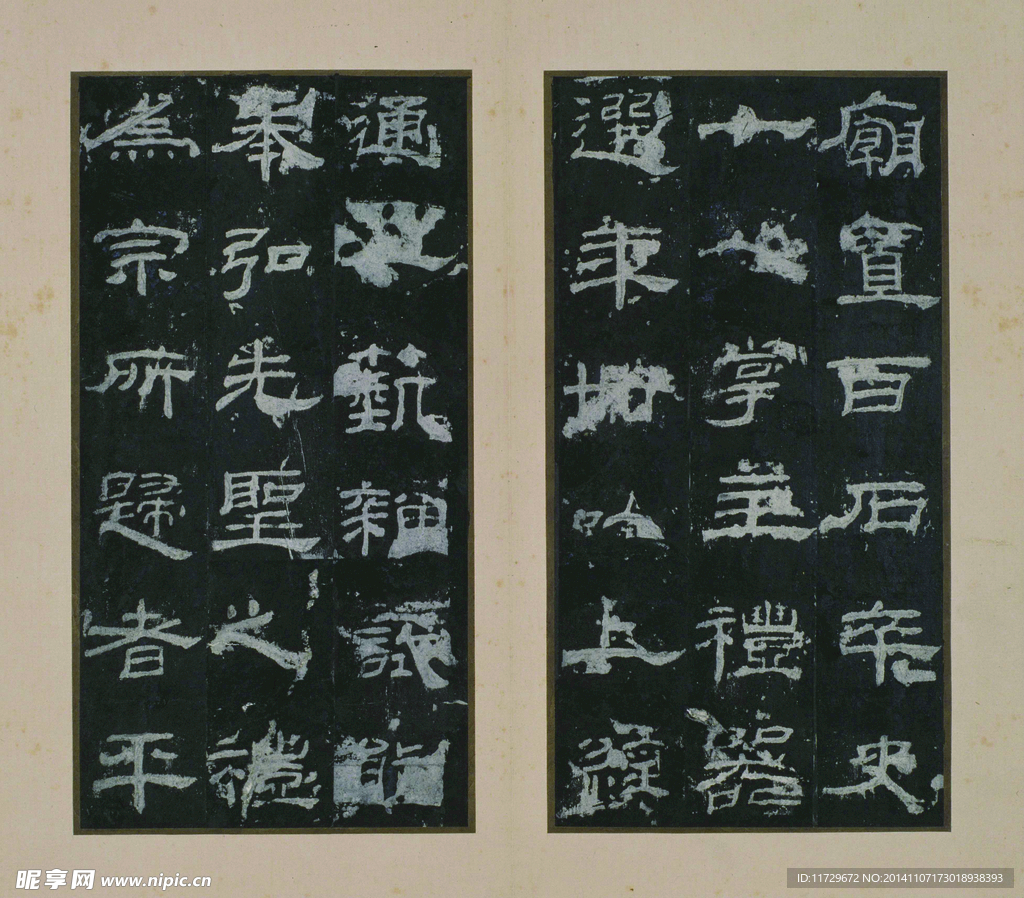 廟置百石卒史
一人掌主禮器
選年卌以上經
通一藝雜試能
奉弘先聖之禮
為宗所歸者平
昵享网 www.nipic.cn
ID:11729672 NO:20141107173018938393